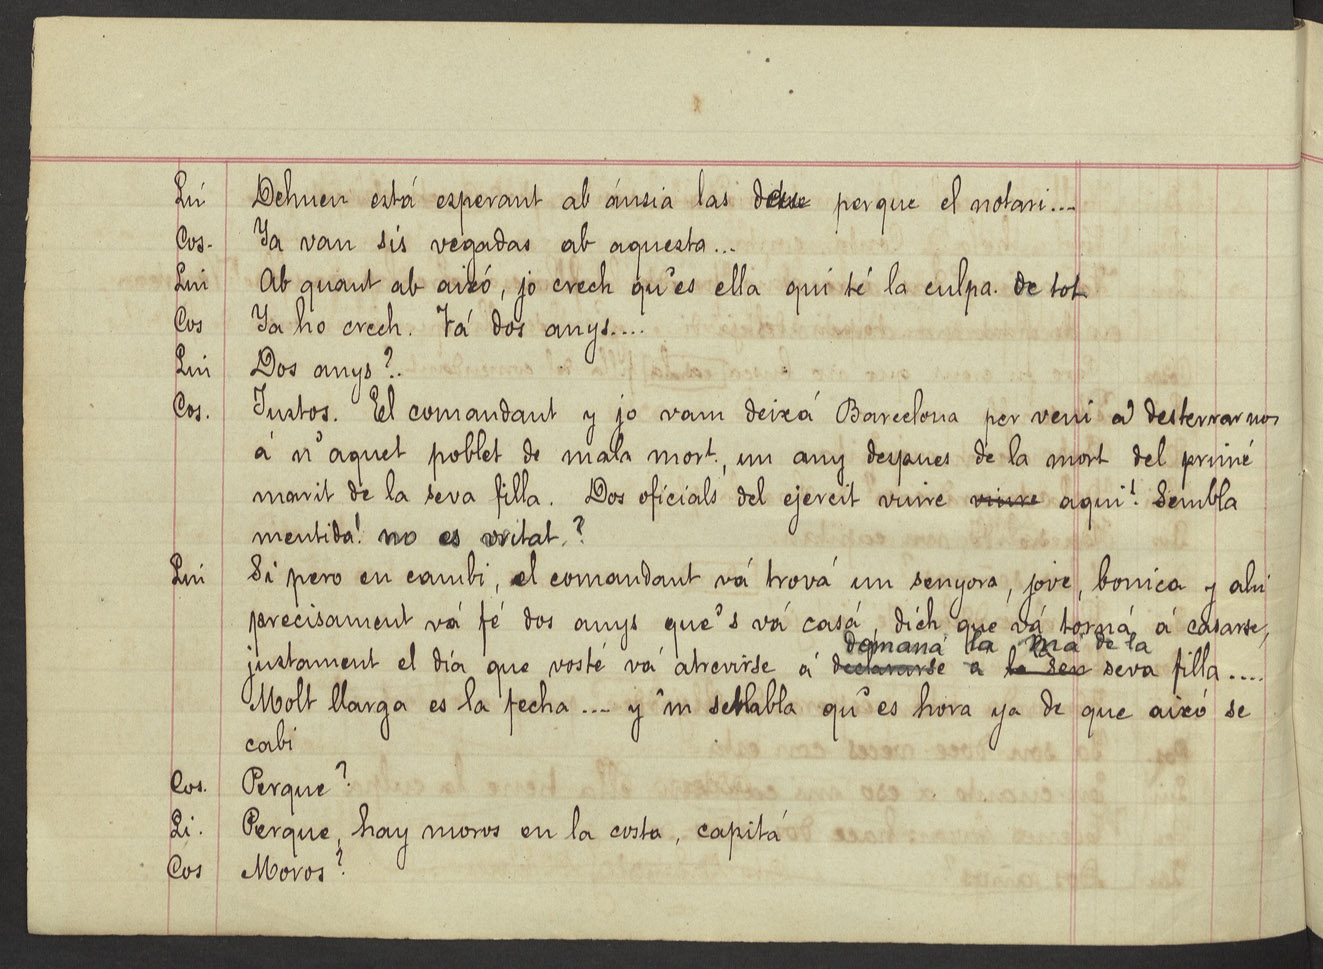 Lui Dehuen está esperant ab ánsia las dotse perque el notari....
Cos- Ja van sis vegadas ab aquesta...
Lui Ab quant ab aixó, jo crech qu'es ella qui té la culpa de tot
Cos Ja ho crech. Fá dos anys....
Lui Dos anys?..
Cos. Justos. El comandant y jo vam deixá Barcelona per veni á desterrarnos
á n'aquet poblet de mala mort, un any despues de la mort del primé
marit de la seva filla. Dos oficials del ejercit viure viure aqui! Sembla
mentida! no es vritat?
Lui Si pero en cambi, el comandant vá trová un senyora, jove, bonica y ahi
precisament vá fé dos anys que's vá casá, dích que vá torná á casarse,
domaná la má de la
justament el día que vosté vá atrevirse á declararse a la seu seva filla....
Molt llarga es la fecha.... y'm semblabla qu'es hora ya de que aixó se
cabi
Cos. Perque?
Li. Perque, hay moros en la costa, capitá
Cos Moros?